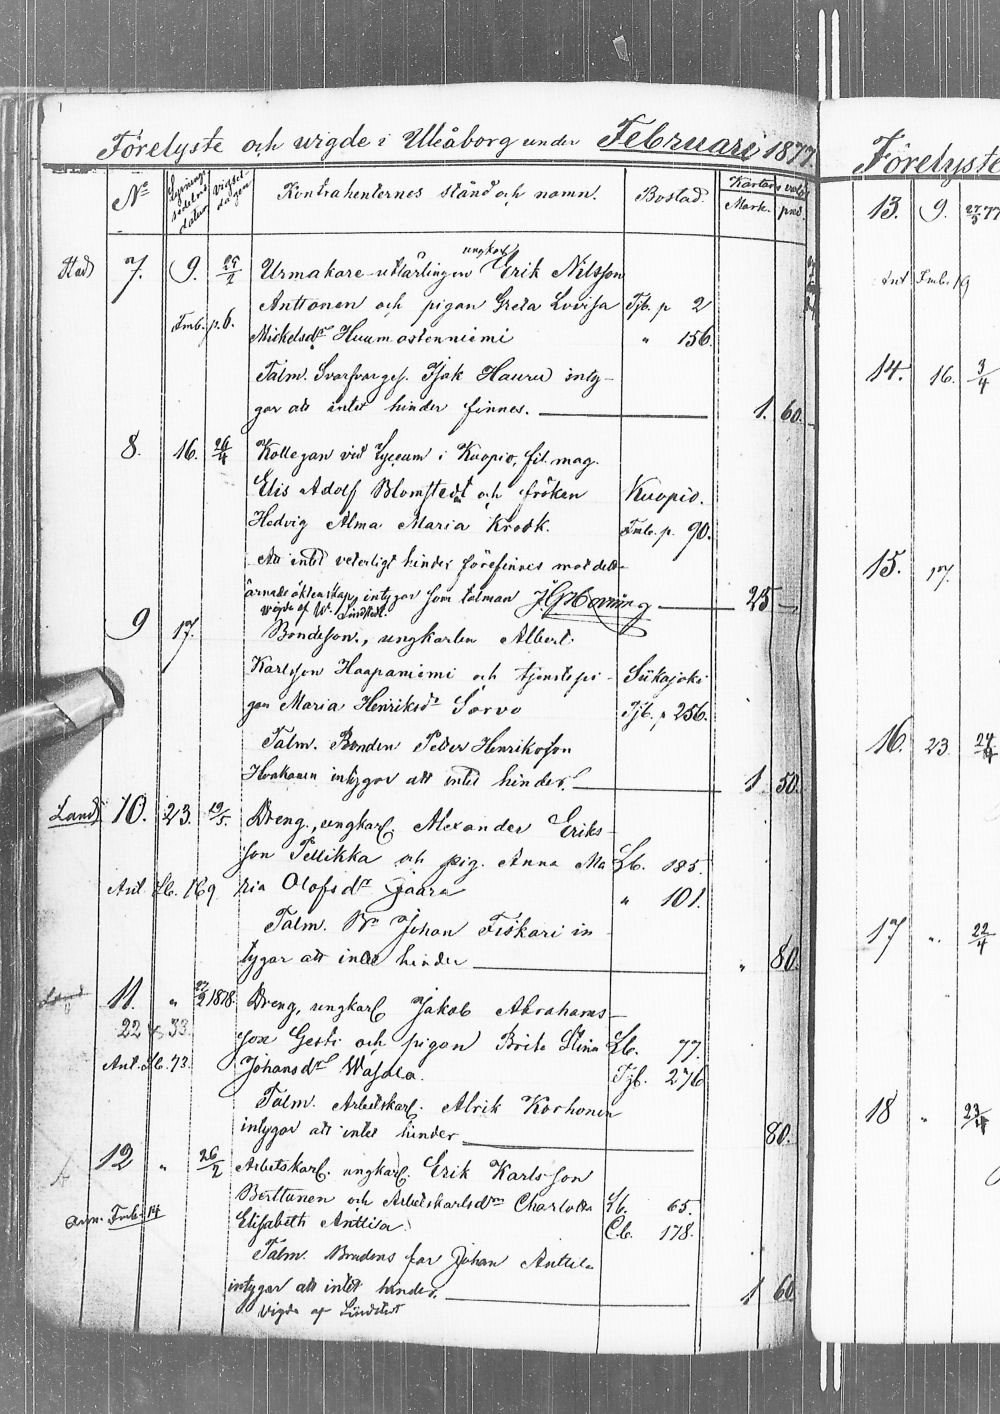 Förelyste och vigde i Uleåborg under Februari 1877.
No Lysnings sedelns datum vigsel dagen Kontrahenternes stånd och namn. Bostad. Kartas valör
Mark. pni.
Stad 7. 9. 25/2 Urmakare-utlärlingen ungkarl Erik Nilsson
Anttonen och pigan Greta Lovisa Tjb. p 2
Fmb. p. 6. Mickelsdr Huumostenniemi " 156.
Talm. Svarfvarges. Isak Hauru inty-
gar att intet hinder finnes. 1. 60.
8. 16. 26/4 Kollegan vid Lyceum i Kuopio, fil. mag.
Elis Adolf Blomstedt och fröken Kuopio.
Hedvig Alma Maria Krook. Fmb. p. 90.
Att intet veterligt hinder förefinnes mot detta
ärnade äktenskap, intygar som talman 25 –
vigde af W. Lindstedt.
9 17. Bondeson, ungkarlen Albert
Karlsson Haapaniemi och tjenstepi- Siikajoki
gan Maria Henriksdr Sarvo Tjb. p 256.
Talm. Bonden Petter Henriksson
intygar att intet hinder. 1 50.
Land 10. 23. 19/5. Dreng., ungkarl. Alexander Eriks-
son Pellikka och pig. Anna Ma Lb. 185.
Ant. Lb. 169 ria Olofsdr Jaara " 101.
Talm. Bn Johan Fiskari in-
tygar att intet hinder " 80.
Land 11. " 22/2 1878. Dreng, ungkarl Jakob Abrahams-
22 & 33. son Gesti och pigan Brita Stina Lb. 77.
Ant. Lb. 73. Johansdr Wasala. Tjb. 276
Talm. Arbetskarl. Alrik Korhonen
intygar att intet hinder 80.
12 " 26/2 Arbetskarl. ungkarl. Erik Karlsson
Berttunen och Arbetskarlsdrn Charlotta Lb. 65.
Fmb. 14 Elisabeth Anttila Cb. 178.
Talm. Brudens far Johan Anttila
intygar att intet hinder. 1 60.
Vigde af Lindstedt
Förelyste
13. 9. 27/3 77
Ant Fmb. 19
14. 16. 3/4
15. 17.
16. 23. 24/4
17 ". 22/4
18 " 23/4